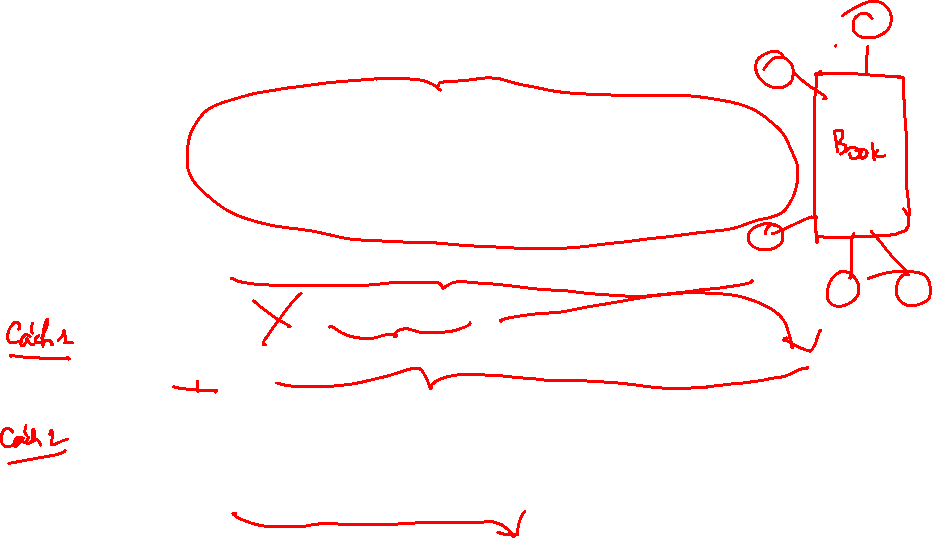 Book
Cách 1
Cách 2